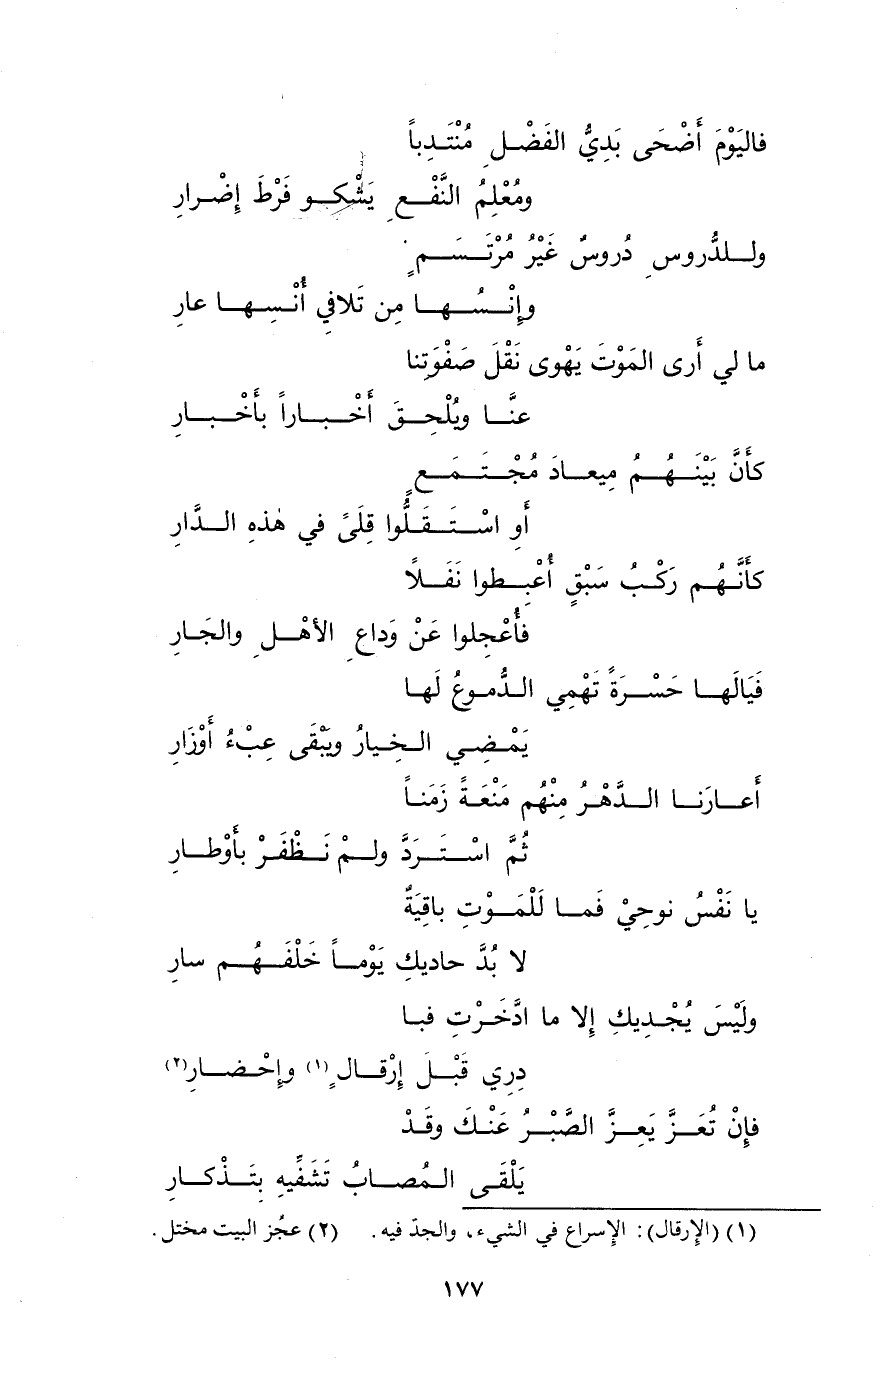 فاليَوْمَ أَضْحَى بَدِيُّ الفَضْلِ مُنْتَدِباً
ومُعْلِمُ النَّفْعِ يَشْكِو فَرْطَ إِضْرارِ
وللدُّروسِ دُروسٌ غَيْرُ مُرْتَسَمٍ
وإِنْسُها مِن تَلافي أُنْسِها عارِ
ما لي أَرى المَوْتَ يَهْوى نَقْلَ صَفْوَتِنا
عنَّا ويُلْحِقَ أَخْباراً بأَخْبارِ
كأَنَّ بَيْنَهُمُ ميعادَ مُجْتَمَعٍ
أَو اسْتَقَلُّوا قِلَىً في هٰذهِ الدَّارِ
كأَنَّهُم رَكْبُ سَبْقٍ أُعْبِطوا نَفَلاً
فأُعْجِلوا عَنْ وَداعِ الأهْلِ والجَارِ
فَيَالَها حَسْرَةً تَهْمِي الدُّموعُ لَها
يَمْضِي الخِيارُ ويَبْقَى عِبْءُ أَوْزَارِ
أَعارَنا الدَّهْرُ مِنْهُم مَنْعَةً زَمَناً
ثُمَّ اسْتَرَدَّ ولمْ نَظْفَرْ بأَوْطارِ
يا نَفْسُ نوحِيْ فَما لَلْمَوْتِ باقِيَةٌ
لا بُدَّ حاديكِ يَوْماً خَلْفَهُم سارِ
ولَيْسَ يُجْدِيكِ إِلا ما ادَّخَرْتِ فبا
دِرِي قَبْلَ إِرْقالٍ (١) وإِحْضارِ (٢)
فإِنْ تُعَزَّ يَعِزَّ الصَّبْرُ عَنْكَ وقَدْ
يَلْقَى المُصابُ تَشَفِّيهِ بِتَذْكارِ
(١) (الإِرقال): الإِسراع في الشيء، والجدّ فيه. (٢) عجُز البيت مختل.
١٧٧